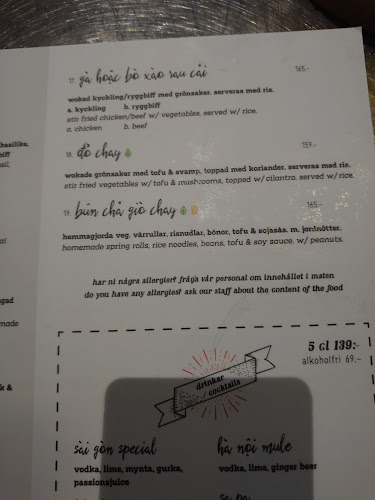 17. gà hoặc bò xào rau cải 165.-
wokad kyckling/ryggbiff med grönsaker. serveras med ris.
a. kyckling b. ryggbiff
stir fried chicken/beef w/ vegetables. served w/ rice.
a. chicken b. beef
basilika,
biff
18. đồ chay 159.-
wokade grönsaker med tofu & svamp, toppad med koriander. serveras med ris.
stir fried vegetables w/ tofu & mushrooms, topped w/ cilantro. served w/ rice.
19. bún chả giò chay 165.-
hemmagjorda veg. vårrullar, risnudlar, bönor, tofu & sojasås. m. jordnötter.
homemade spring rolls, rice noodles, beans, tofu & soy sauce. w/ peanuts.
har ni några allergier? fråga vår personal om innehållet i maten
do you have any allergies? ask our staff about the content of the food
gad
made
k &
5 cl 139:-
alkoholfri 69.-
drinkar
/ cocktails
sài gòn special
vodka, lime, mynta, gurka,
passionsjuice
hà nội mule
vodka, lime, ginger beer
sa pa